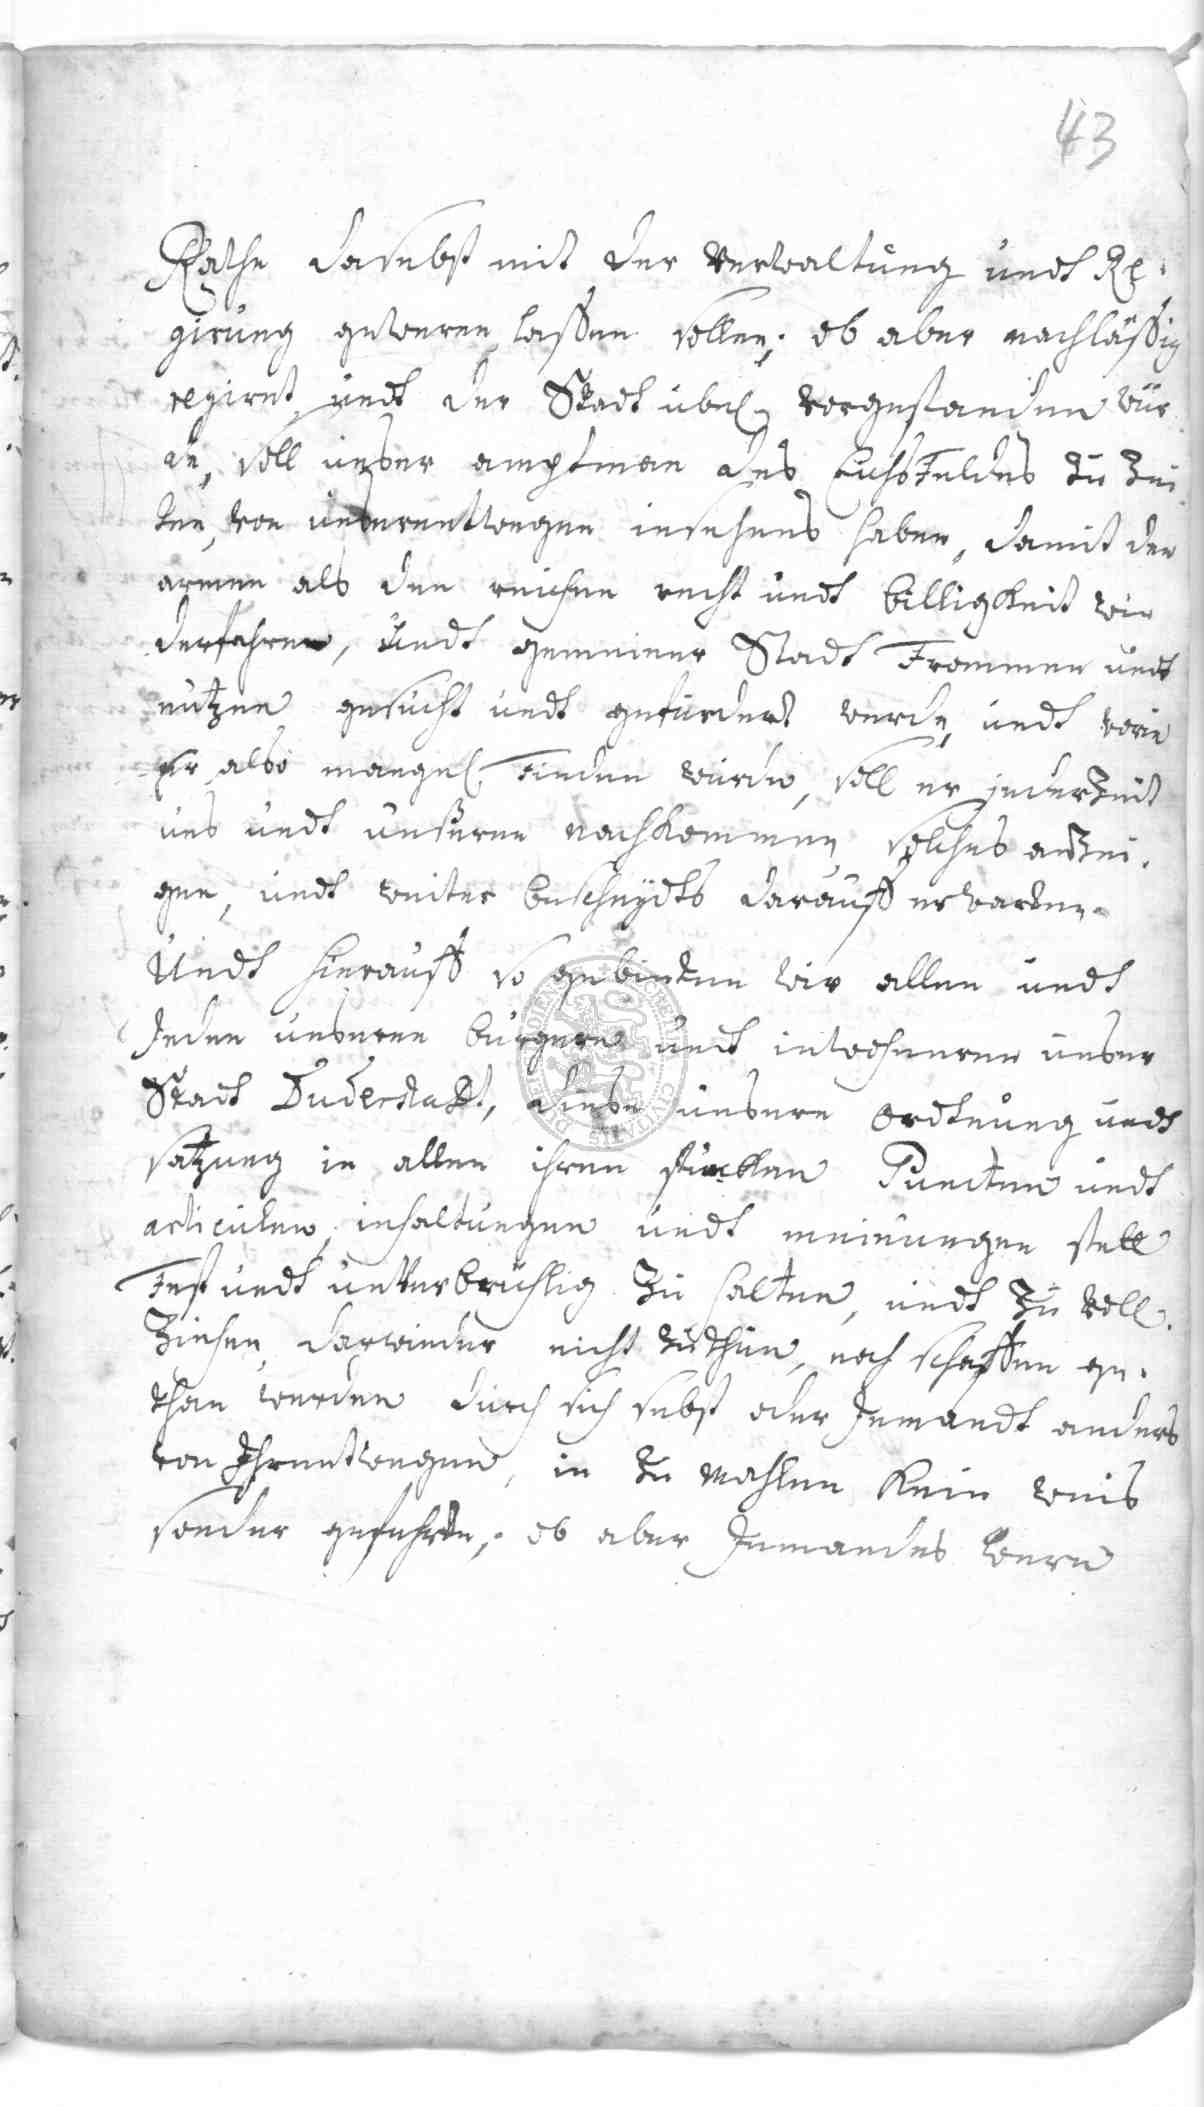 43
Rathe daselbst mit der Verwaltung undt Re-
girung geweren lassen sollen, ob aber nachlässig
regiret undt der Stadt ubel vorgestanden wür
de, soll unser amptman des Eichsfeldes zu Zei
ten, von unserentwegen insehens haben, damit den
armen als den reichen recht undt billigkeit wie
derfahren, undt gemeiner Stadt Frommen undt
nutzen gesucht undt gefürdert werde, undt worin
Er also mangel finden würde, soll er jederZeit
uns undt unseren nachkommen solches anZei-
gen, undt weiter bescheydts darauff erwarten.
Undt hierauff so gebieten wir allen undt
Jeden unseren bürgern undt inwohneren unser
Stadt Duderstadt, diese unsere Ordtnung undt
satzung in allen ihren stücken Puncten undt
articulen, inhaltungen undt meinungen stett
Fest undt unverbrüchlig Zu halten, undt Zu voll-
Ziehen, darwieder nicht zu thun, noch schaffen ge-
than werden durch sich selbst oder Jemandt anders
von Ihrentwegen, in zu mahlen Kein weis
sonder gefehrde, ob aber Jemandes were